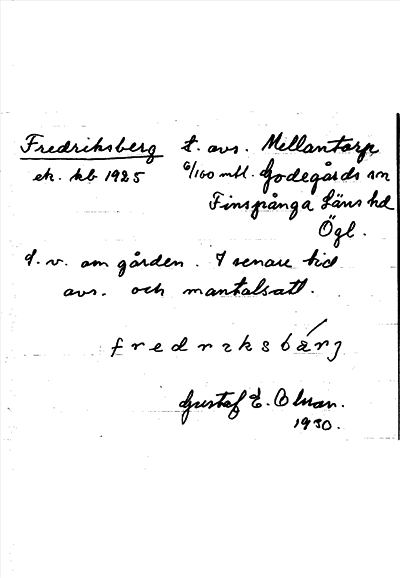 Fredriksberg t. avs. Mellantorp
ek. kb 1925 6/160 mtl. Godegårds sn
Finspånga Läns hd
Ögl.
d. v. om gården. I senare tid
avs. och mantalsatt.
fredrɩksbärj
Gustaf E. Olson.
1930.